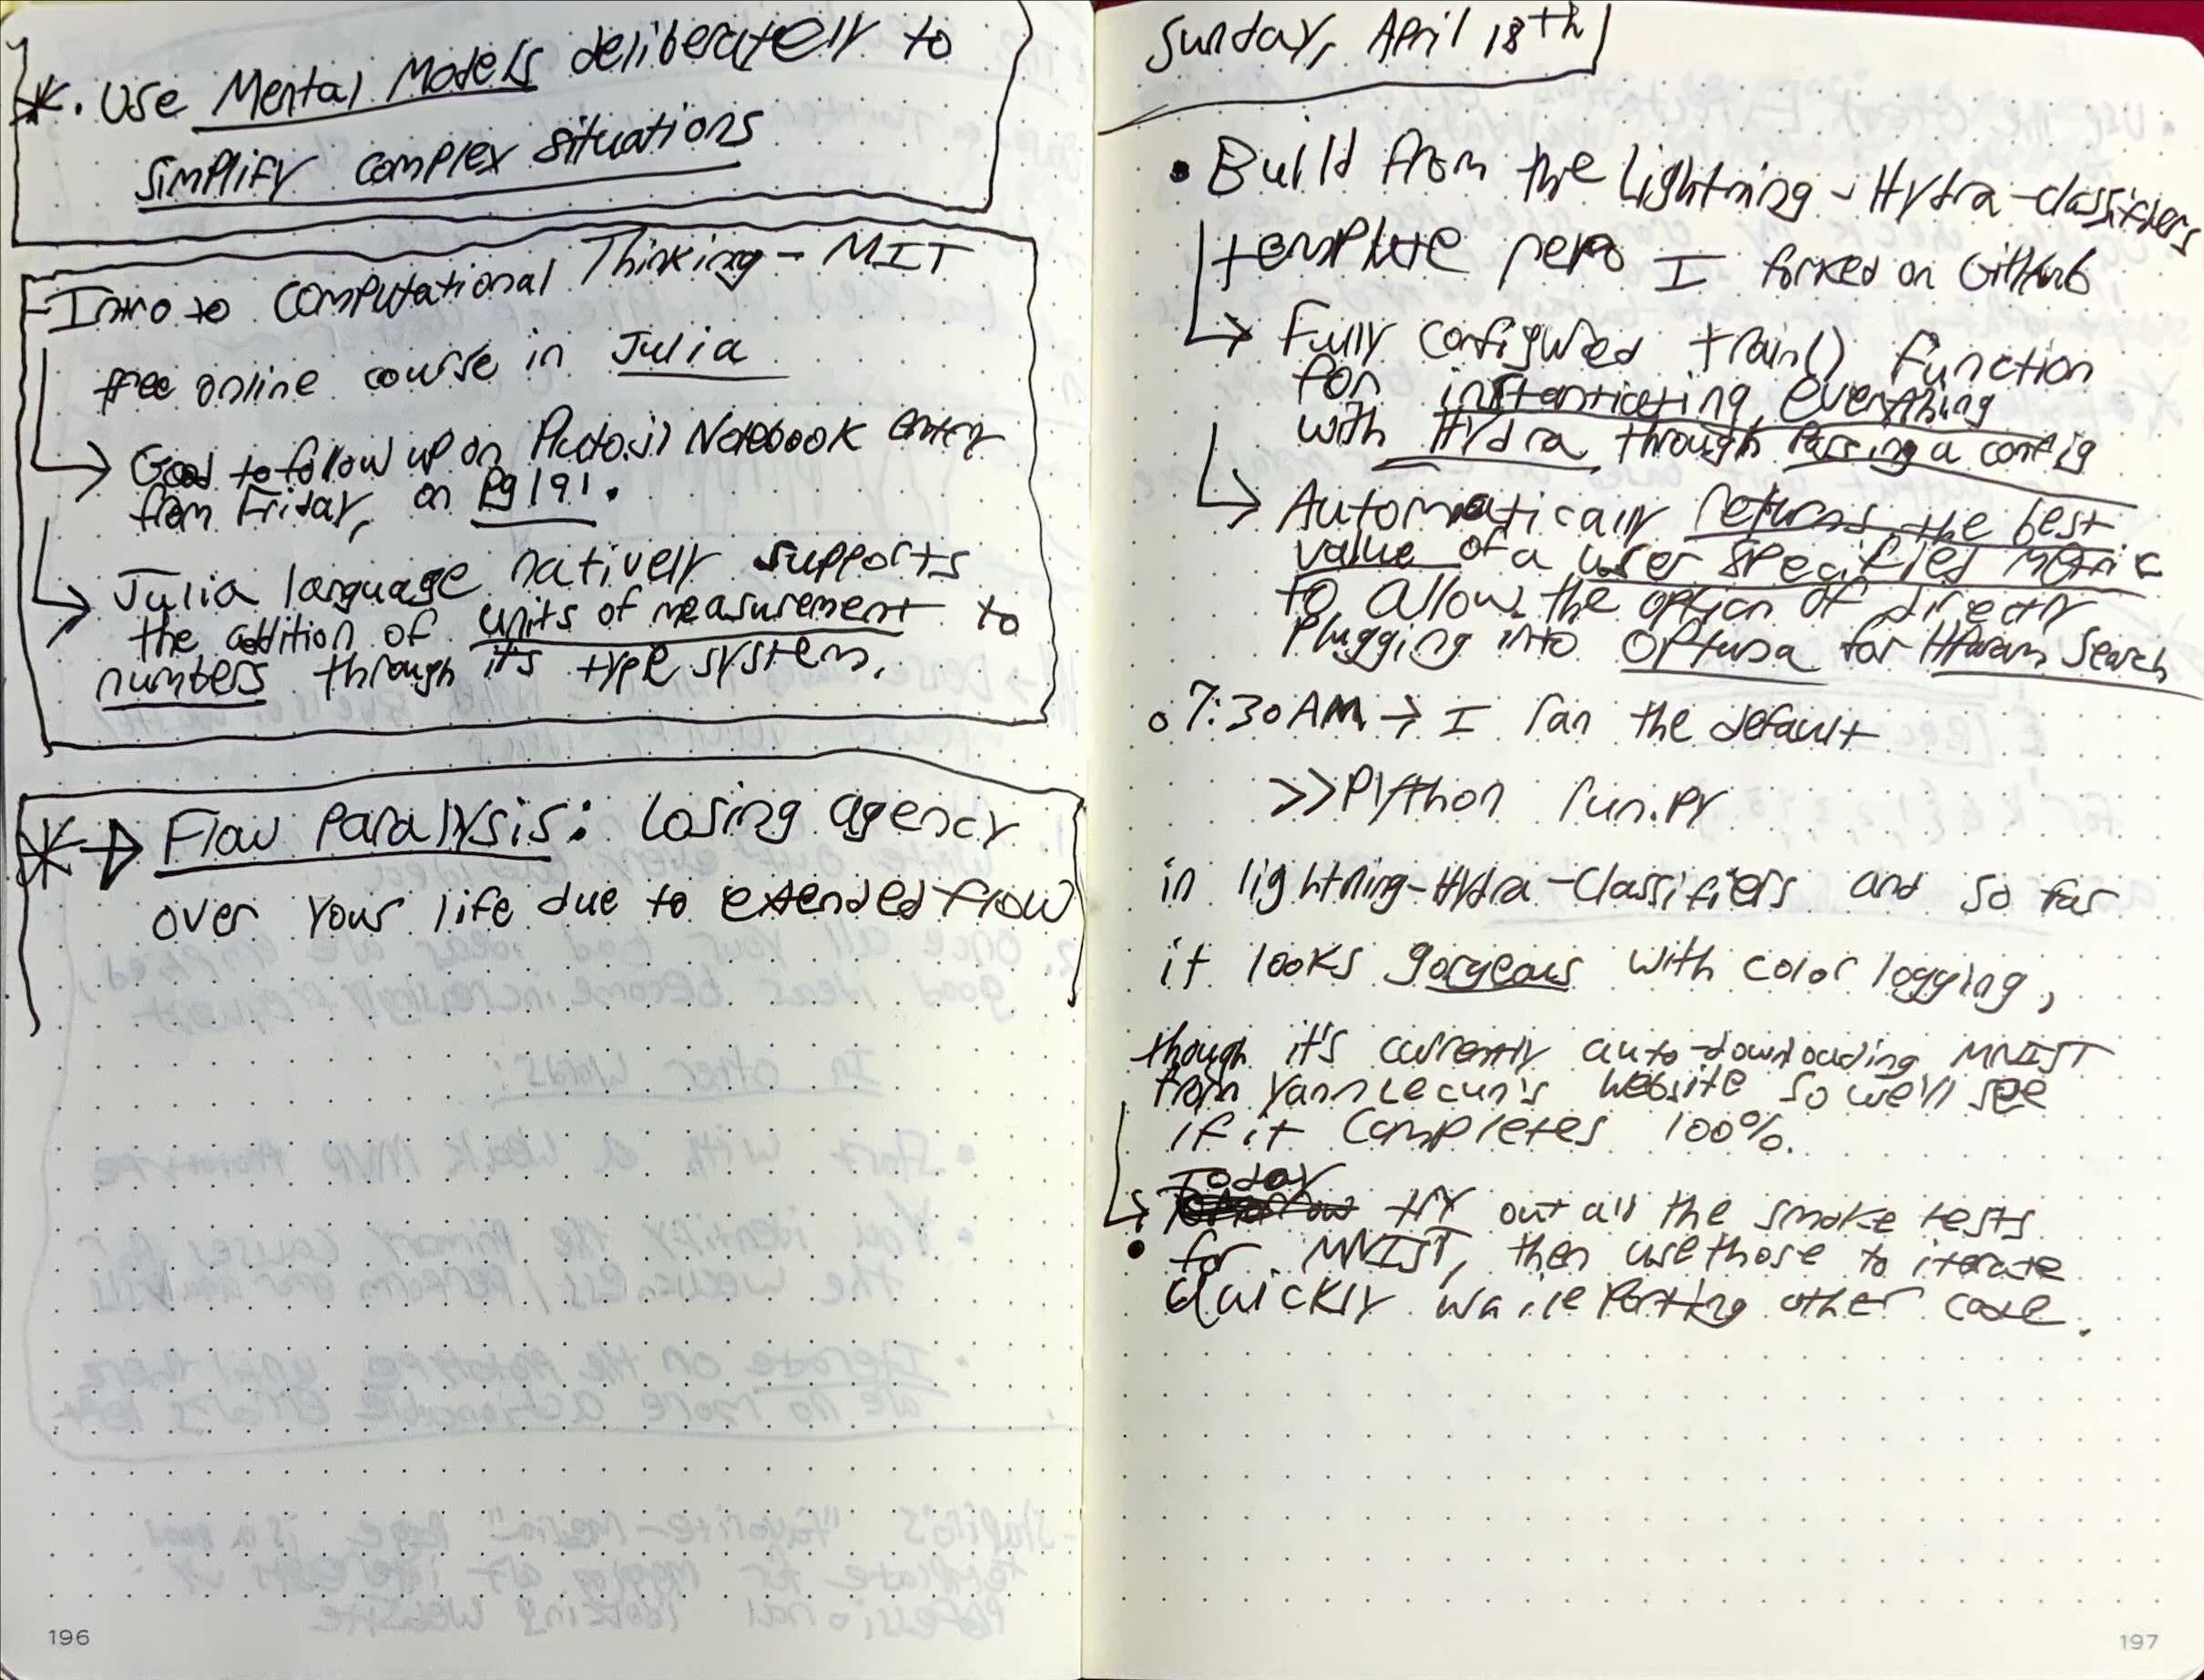 * . Use Mental Models deliberately to
simplify complex situations
- Intro to Computational Thinking - MIT
free online course in Julia
→ Good to follow up on Pluto.jl Notebook entry
from Friday, on Pg 191.
→ Julia language natively supports
the addition of units of measurement to
numbers through its type system.
* → Flow Paralysis: Losing agency
over your life due to extended flow
196
Sunday, April 18th
• Build from the Lightning-Hydra-classifiers
template repo I forked on GitHub
→ Fully configured train() function
for instantiating everything
with Hydra through passing a config
→ Automatically returns the best
value of a user specified metric
to allow the option of directly
plugging into Optuna for Hparam Search
o 7:30 AM → I ran the default
>> Python run.py
in lightning-Hydra-Classifiers and so far
it looks gorgeous with color logging,
though it's currently auto-downloading MNIST
from Yann Lecun's website so we'll see
if it completes 100%.
Today
→ try out all the smoke tests
• for MNIST, then use those to iterate
Quickly while Porting other code.
197